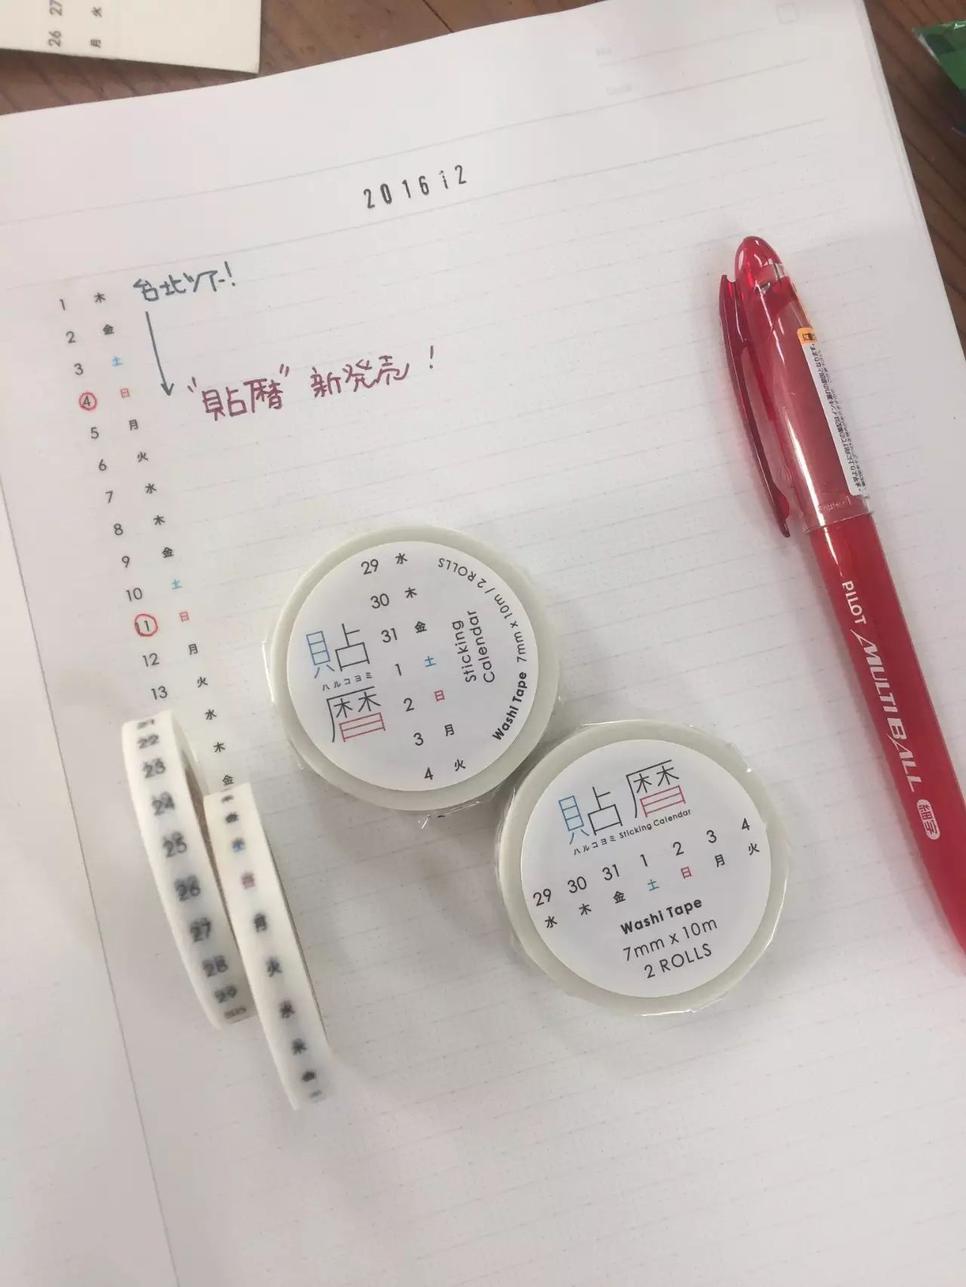 26 27
月 火
2016 12
台北ツアー!
"貼暦" 新発売!
1 木
2 金
3 土
4 日
5 月
6 火
7 水
8 木
9 金
10 土
11 日
12 月
13 火
水
木
金
21
22
23
24
25
26
27
28
29
水
日
月
火
水
木
金
貼暦
ハルコヨミ
29 水
30 木
31 金
1 土
2 日
3 月
4 火
Sticking
Calendar
Washi Tape 7mm x 10m / 2 ROLLS
貼暦
ハルコヨミ Sticking Calendar
29 30 31 1 2 3 4
水 木 金 土 日 月 火
Washi Tape
7mm x 10m
2 ROLLS
PILOT MULTI BALL 細字